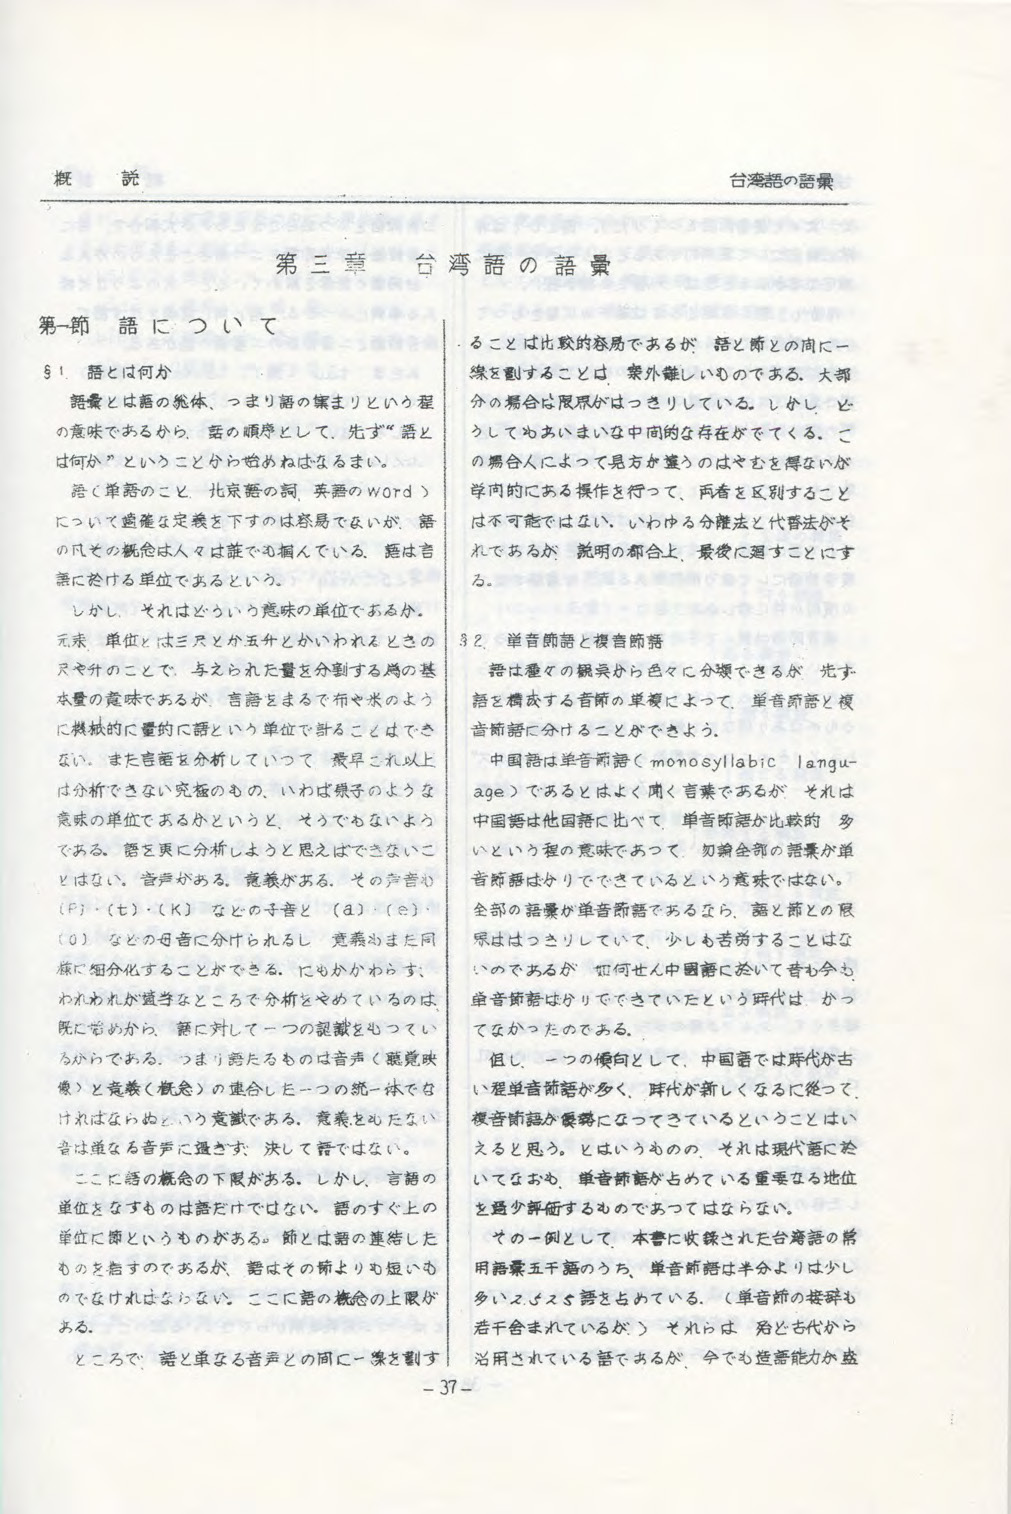 概　説
台湾語の語彙
第三章　台湾語の語彙
第一節　語について
§1. 語とは何か
語彙とは語の総体、つまり語の集まりという程
の意味であるから、話の順序として、先ず“語と
は何か”ということから始めねばなるまい。
語（単語のこと、北京語の詞、英語のword）
について適確な定義を下すのは容易でないが、語
の凡その概念は人々は誰でも掴んでいる。語は言
語に於ける単位であるという。
しかし、それはどういう意味の単位であるか。
元来、単位とは三尺とか五升とかいわれるときの
尺や升のことで、与えられた量を分割する為の基
本量の意味であるが、言語をまるで布や米のよう
に機械的に量的に語という単位で計ることはでき
ない。また言語を分析していって、最早これ以上
は分析できない究極のもの、いわば原子のような
意味の単位であるかというと、そうでもないよう
である。語を更に分析しようと思えばできないこ
とはない。音声がある。意義がある。その声音も
(P)・(t)・(K) などの子音と (a)・(e)・
(o) などの母音に分けられるし、意義もまた同
様に細分化することができる。にもかかわらず、
われわれが適当なところで分析をやめているのは、
既に始めから、語に対して一つの認識をもってい
るからである。つまり語たるものは音声（聴覚映
像）と意義（概念）の連合した一つの統一体でな
ければならぬという意識である。意義をもたない
音は単なる音声に過ぎず、決して語ではない。
ここに語の概念の下限がある。しかし、言語の
単位をなすものは語だけではない。語のすぐ上の
単位に節というものがある。節とは語の連結した
ものを指すのであるが、語はその節よりも短いも
のでなければならない。ここに語の概念の上限が
ある。
ところで、語と単なる音声との間に一線を劃す
ることは比較的容易であるが、語と節との間に一
線を劃することは、案外難しいものである。大部
分の場合は限界がはっきりしている。しかし、ど
うしてもあいまいな中間的な存在がでてくる。こ
の場合人によって見方が違うのはやむを得ないが
学問的にある操作を行って、両者を区別すること
は不可能ではない。いわゆる分離法と代替法がそ
れであるが、説明の都合上、最後に廻すことにす
る。
§2. 単音節語と複音節語
語は種々の観点から色々に分類できるが、先ず
語を構成する音節の単複によって、単音節語と複
音節語に分けることができよう。
中国語は単音節語（monosyllabic langu-
age）であるとはよく聞く言葉であるが、それは
中国語は他国語に比べて、単音節語が比較的 多
いという程の意味であって、勿論全部の語彙が単
音節語ばかりでできているという意味ではない。
全部の語彙が単音節語であるなら、語と節との限
界ははっきりしていて、少しも苦労することはな
いのであるが、如何せん中國語に於いて昔も今も
単音節語ばかりでできていたという時代は、かつ
てなかったのである。
但し、一つの傾向として、中国語では時代が古
い程単音節語が多く、時代が新しくなるに従って、
複音節語が優勢になってきているということはい
えると思う。とはいうものの、それは現代語に於
いてなおも、単音節語が占めている重要なる地位
を過少評価するものであってはならない。
その一例として、本書に收録された台湾語の常
用語彙五千語のうち、単音節語は半分よりは少し
多い2,525語を占めている。（単音節の接辞も
若干含まれているが）それらは、殆ど古代から
沿用されている語であるが、今でも造語能力が盛
－37－